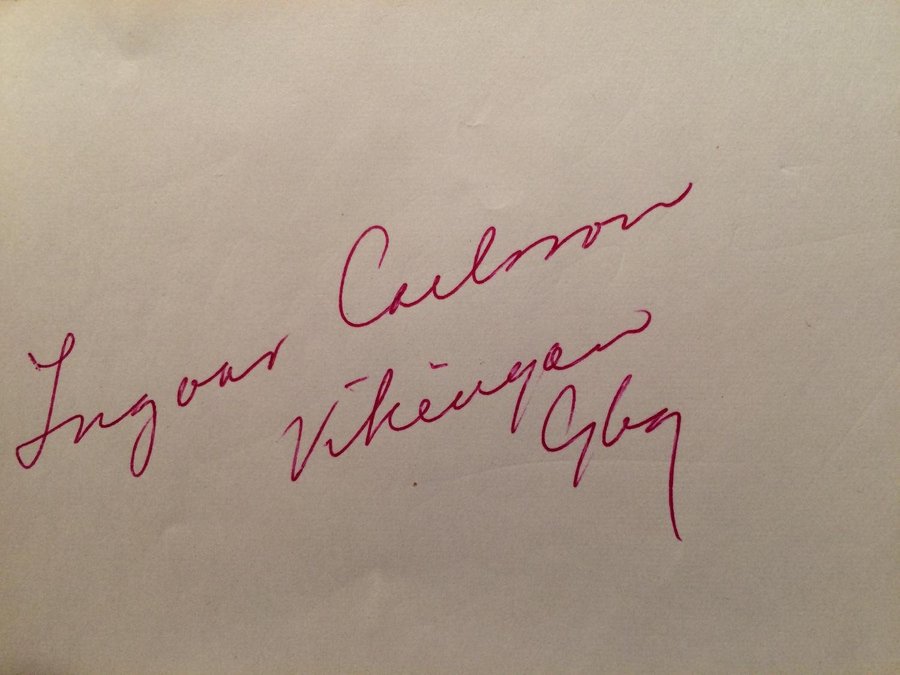 Ingvar Carlsson
Vikingen
Gbg